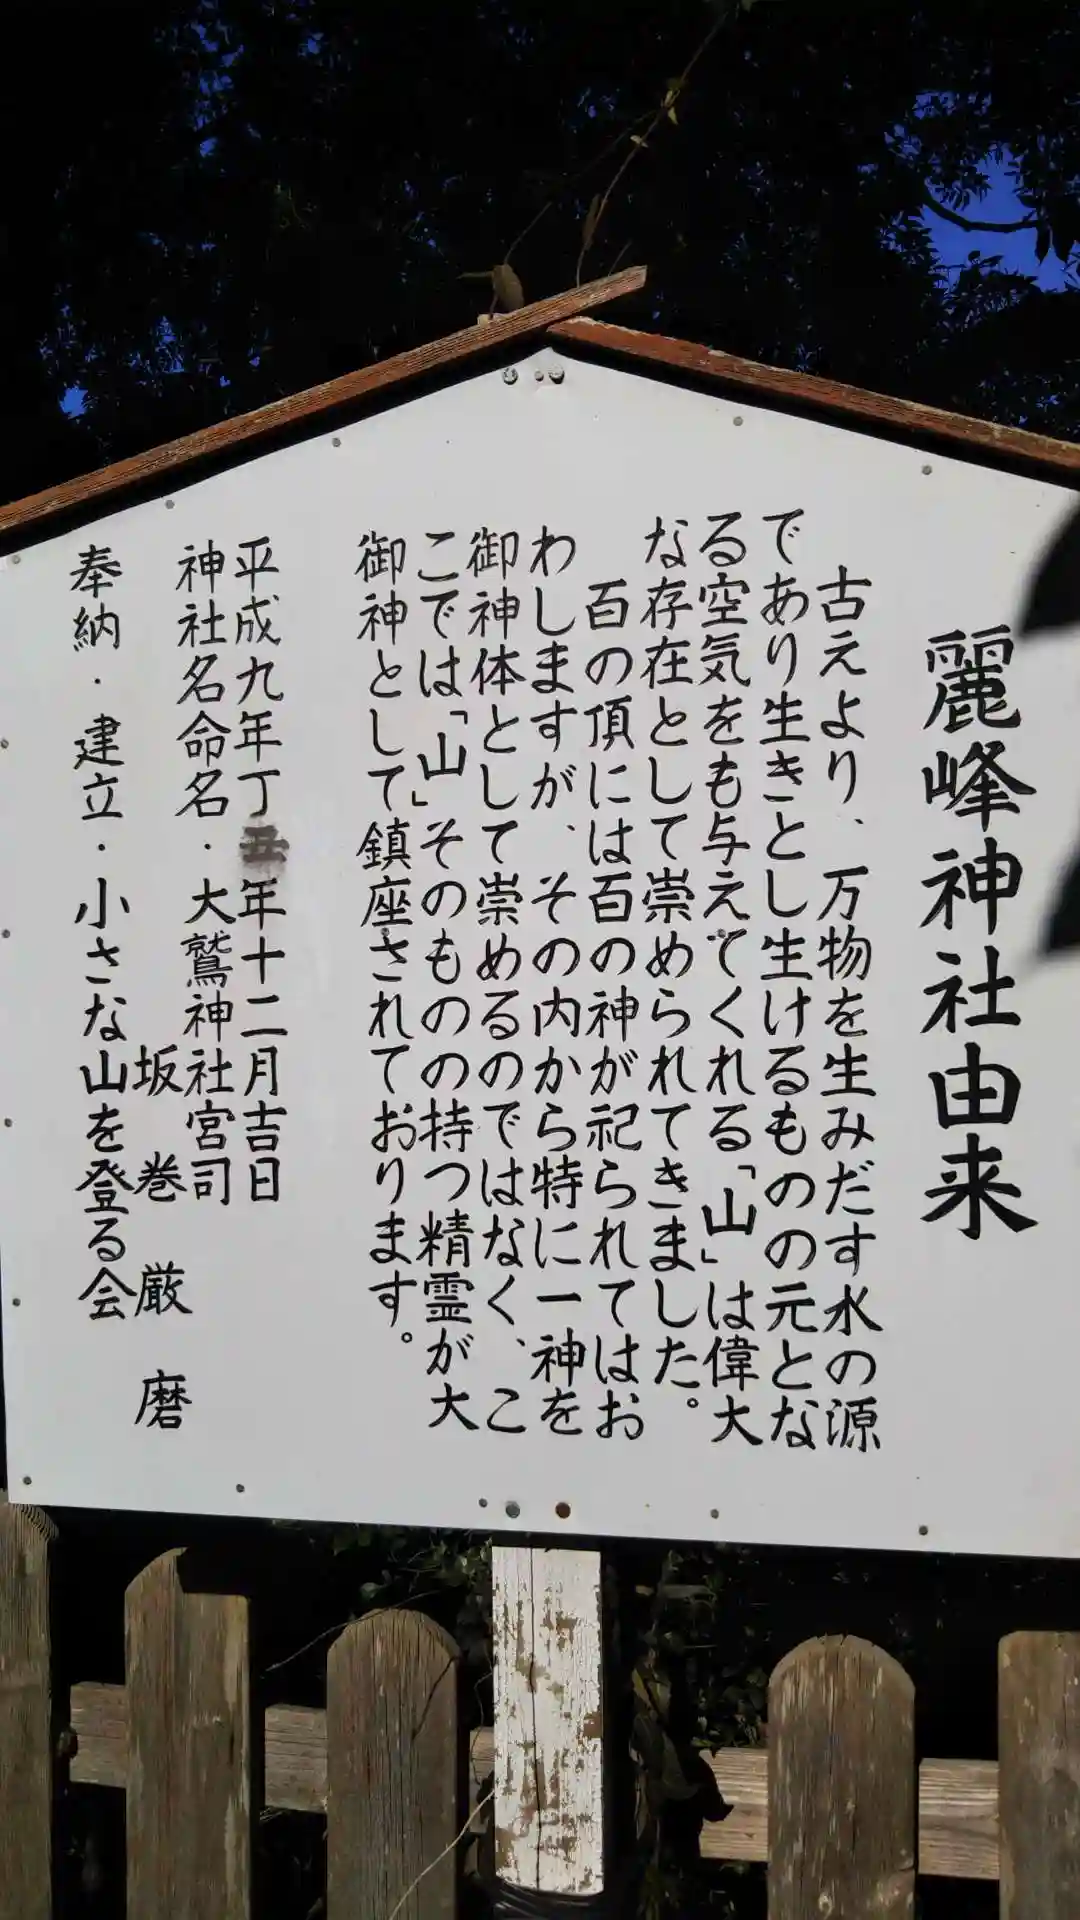 麗峰神社由来
古えより、万物を生みだす水の源
であり生きとし生けるものの元とな
る空気をも与えてくれる「山」は偉大
な存在として崇められてきました。
百の頂には百の神が祀られてはお
わしますが、その内から特に一神を
御神体として崇めるのではなく、こ
こでは「山」そのものの持つ精霊が大
御神として鎮座されております。
平成九年丁丑年十二月吉日
神社名命名・大鷲神社宮司
坂巻厳磨
奉納・建立・小さな山を登る会